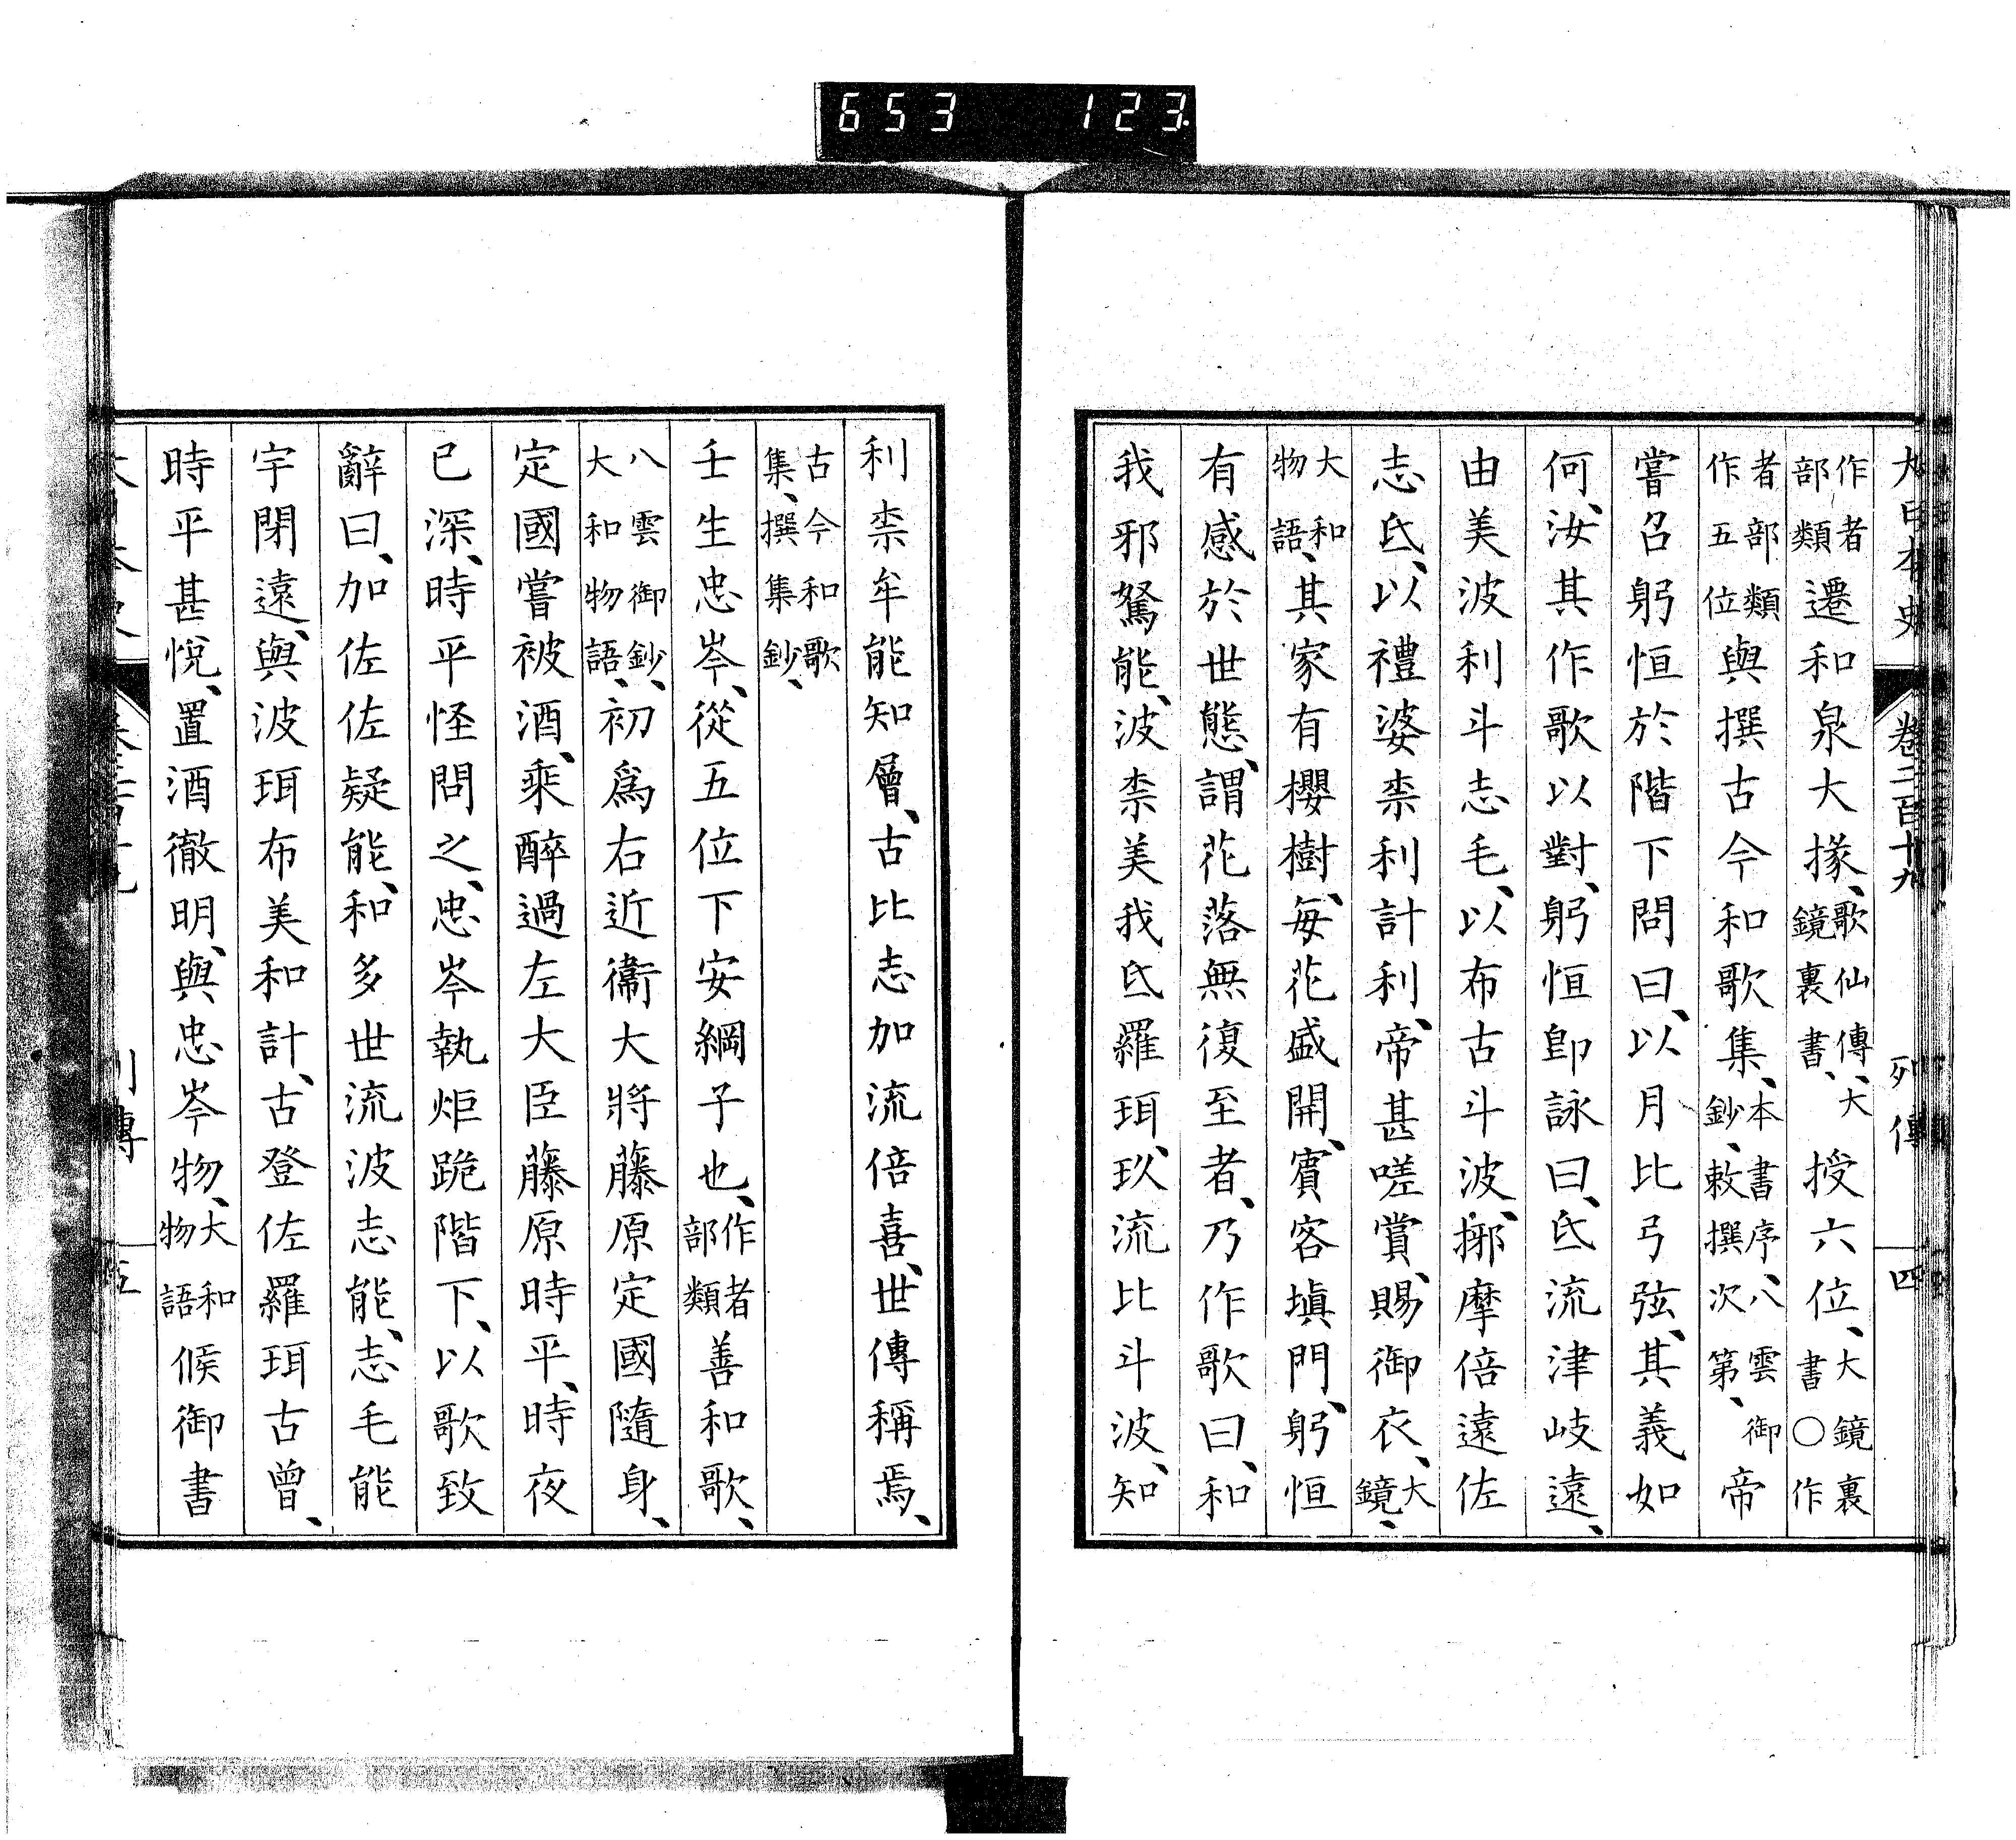 653 123
大日本史 卷二百十九 列傳 四
作者部類遷和泉大掾、歌仙傳、大鏡裏書、授六位、大鏡裏書○作
者部類作五位與撰古今和歌集、本書序、八雲御鈔、敕撰次第、帝
嘗召躬恒於階下問曰、以月比弓弦、其義如
何、汝其作歌以對、躬恒卽詠曰、氐流津岐遠、
由美波利斗志毛、以布古斗波、挪摩倍遠佐
志氐、以禮婆柰利計利、帝甚嗟賞、賜御衣、大鏡、
大和物語、其家有櫻樹、每花盛開、賓客塡門、躬恒
有感於世態、謂花落無復至者、乃作歌曰、和
我邪駑能、波柰美我氐羅珥、玖流比斗波、知
利柰牟能知層、古比志加流倍喜、世傳稱焉、
古今和歌集、撰集鈔、
壬生忠岑、從五位下安綱子也、作者部類善和歌、
八雲御鈔、大和物語、初爲右近衞大將藤原定國隨身、
定國嘗被酒、乘醉過左大臣藤原時平、時夜
已深、時平怪問之、忠岑執炬跪階下、以歌致
辭曰、加佐佐疑能、和多世流波志能、志毛能
宇閉遠、與波珥布美和計、古登佐羅珥古曾、
時平甚悅、置酒徹明、與忠岑物、大和物語候御書
列傳 五